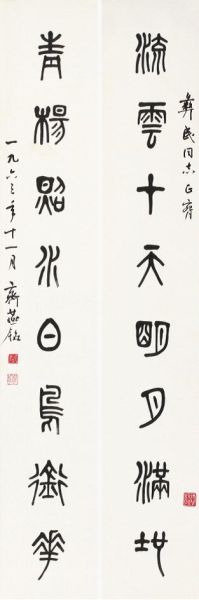 彝民同志正
流雲在天明月滿地
青楊照水白鳥銜花
一九六三年十一月齊燕銘